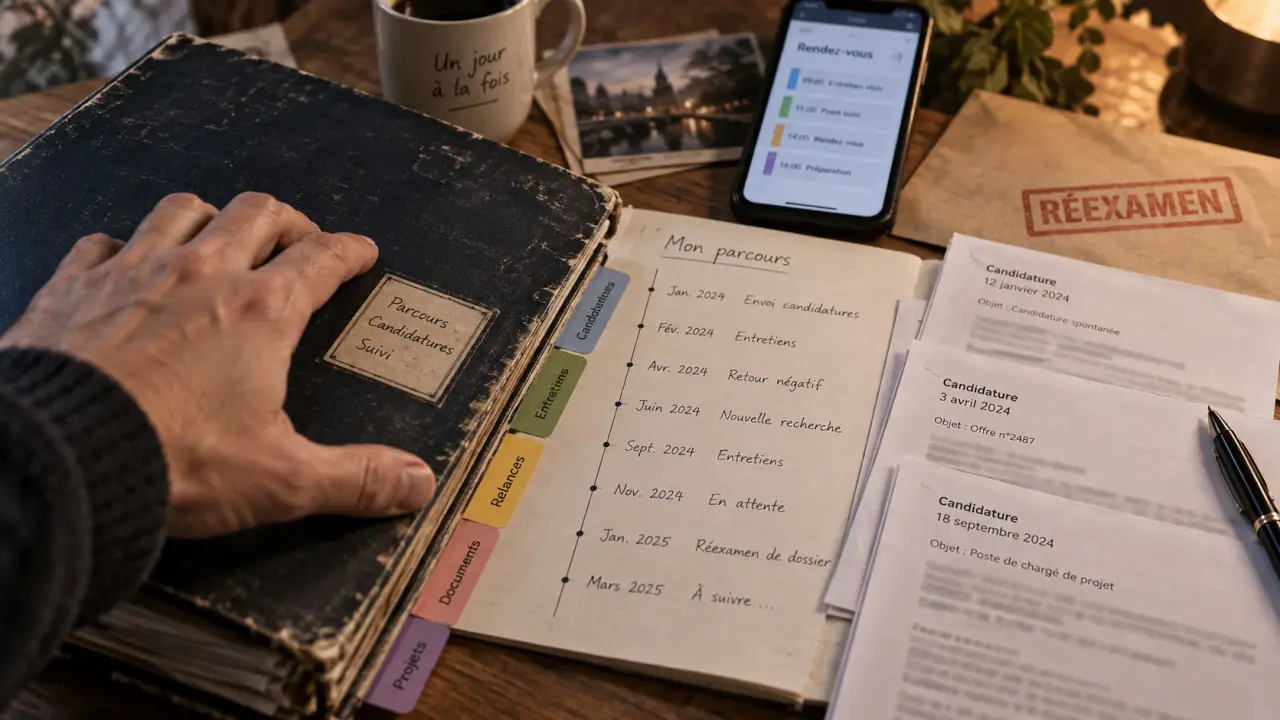 Un jour
à la fois
Rendez-vous
09:00 Entretien
11:00 Point suivi
14:00 Rendez-vous
16:00 Préparation
RÉEXAMEN
Parcours
Candidatures
Suivi
Candidatures
Entretiens
Relances
Documents
Projets
Mon parcours
Jan. 2024 Envoi candidatures
Fév. 2024 Entretiens
Avr. 2024 Retour négatif
Juin 2024 Nouvelle recherche
Sept. 2024 Entretiens
Nov. 2024 En attente
Jan. 2025 Réexamen de dossier
Mars 2025 À suivre ...
Candidature
12 janvier 2024
Objet : Candidature spontanée
Candidature
3 avril 2024
Objet : Offre n°2487
Candidature
18 septembre 2024
Objet : Poste de chargé de projet